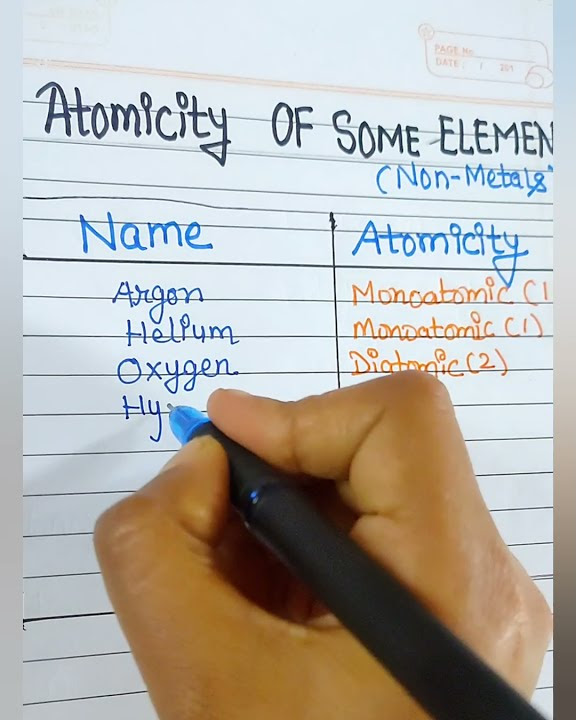 PAGE No.
DATE : / / 201
Atomicity OF SOME ELEMEN
(Non-Metals
Name Atomicity
Argon Monoatomic (1
Helium Monoatomic (1)
Oxygen Diatomic (2)
Hy